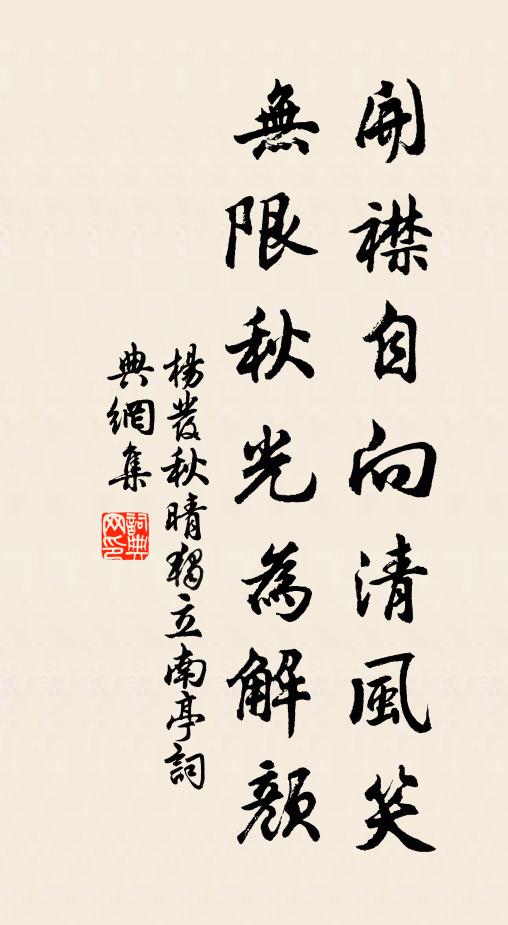 開襟自向清風笑
無限秋光為解顏
楊發秋晴獨立南亭詞
典網集
詞典網印